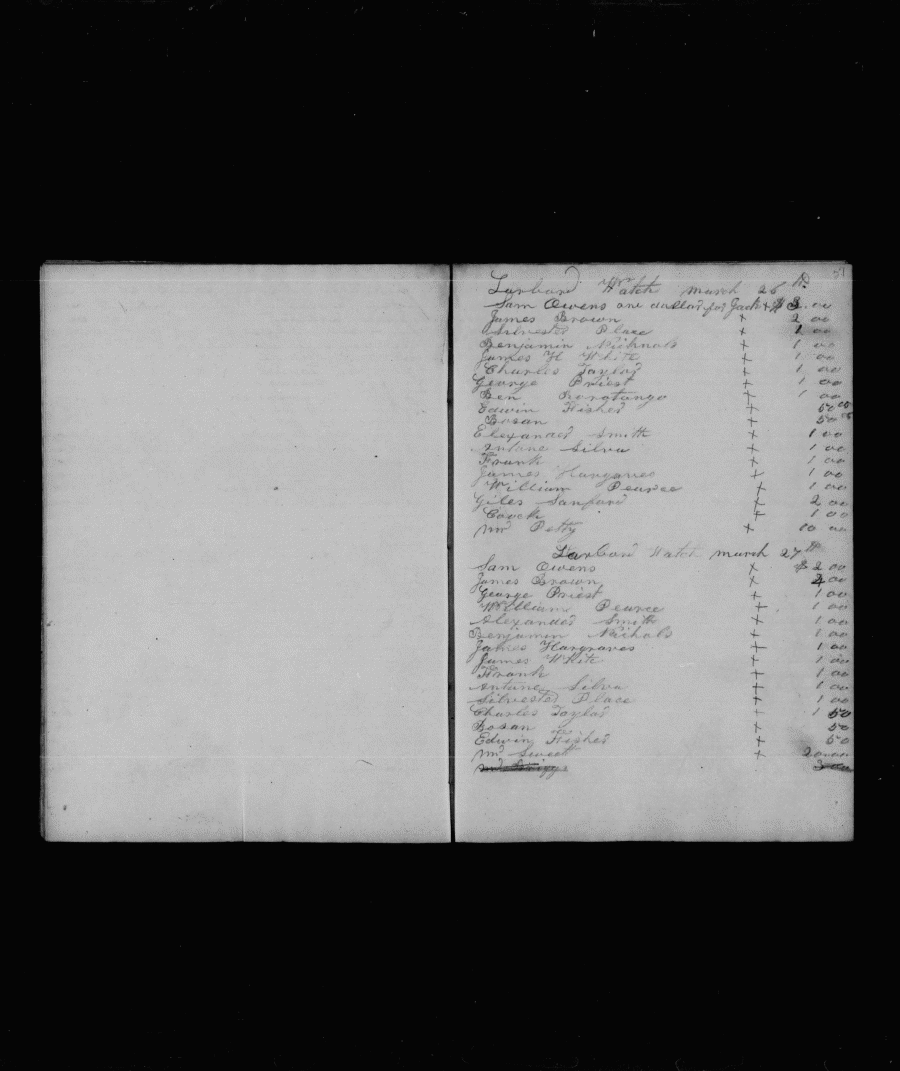 Larboard Watch march 26 th
Sam Owens one dollar for Jack x $ 3.00
James Brown x 2 00
Silvester Place x 1 00
Benjamin Nichnals x 1 00
James H White x 1 00
Charles Taylor x 1 00
George Priest x 1 00
Ben x 1 00
Edwin Fisher x 50
Bosan x 50
Elexander Smith x 1 00
Antane Silva x 1 00
Frank x 1 00
James Hargraves x 1 00
William Pearce x 1 00
Giles Sanford x 2 00
Coock x 1 00
Mr Petty x 10 00
Larbord Watch march 27 th
Sam Owens x $ 2 00
James Brown x 2 00
George Priest x 1 00
William Pearce x 1 00
Alexander Smith x 1 00
Benjamin Nichals x 1 00
James Hargraves x 1 00
James White x 1 00
Frank x 1 00
Antane Silva x 1 00
Silvester Place x 1 00
Charles Taylor x 1 50
Bosan x 50
Edwin Fisher x 50
Mr Sweett x 20 00